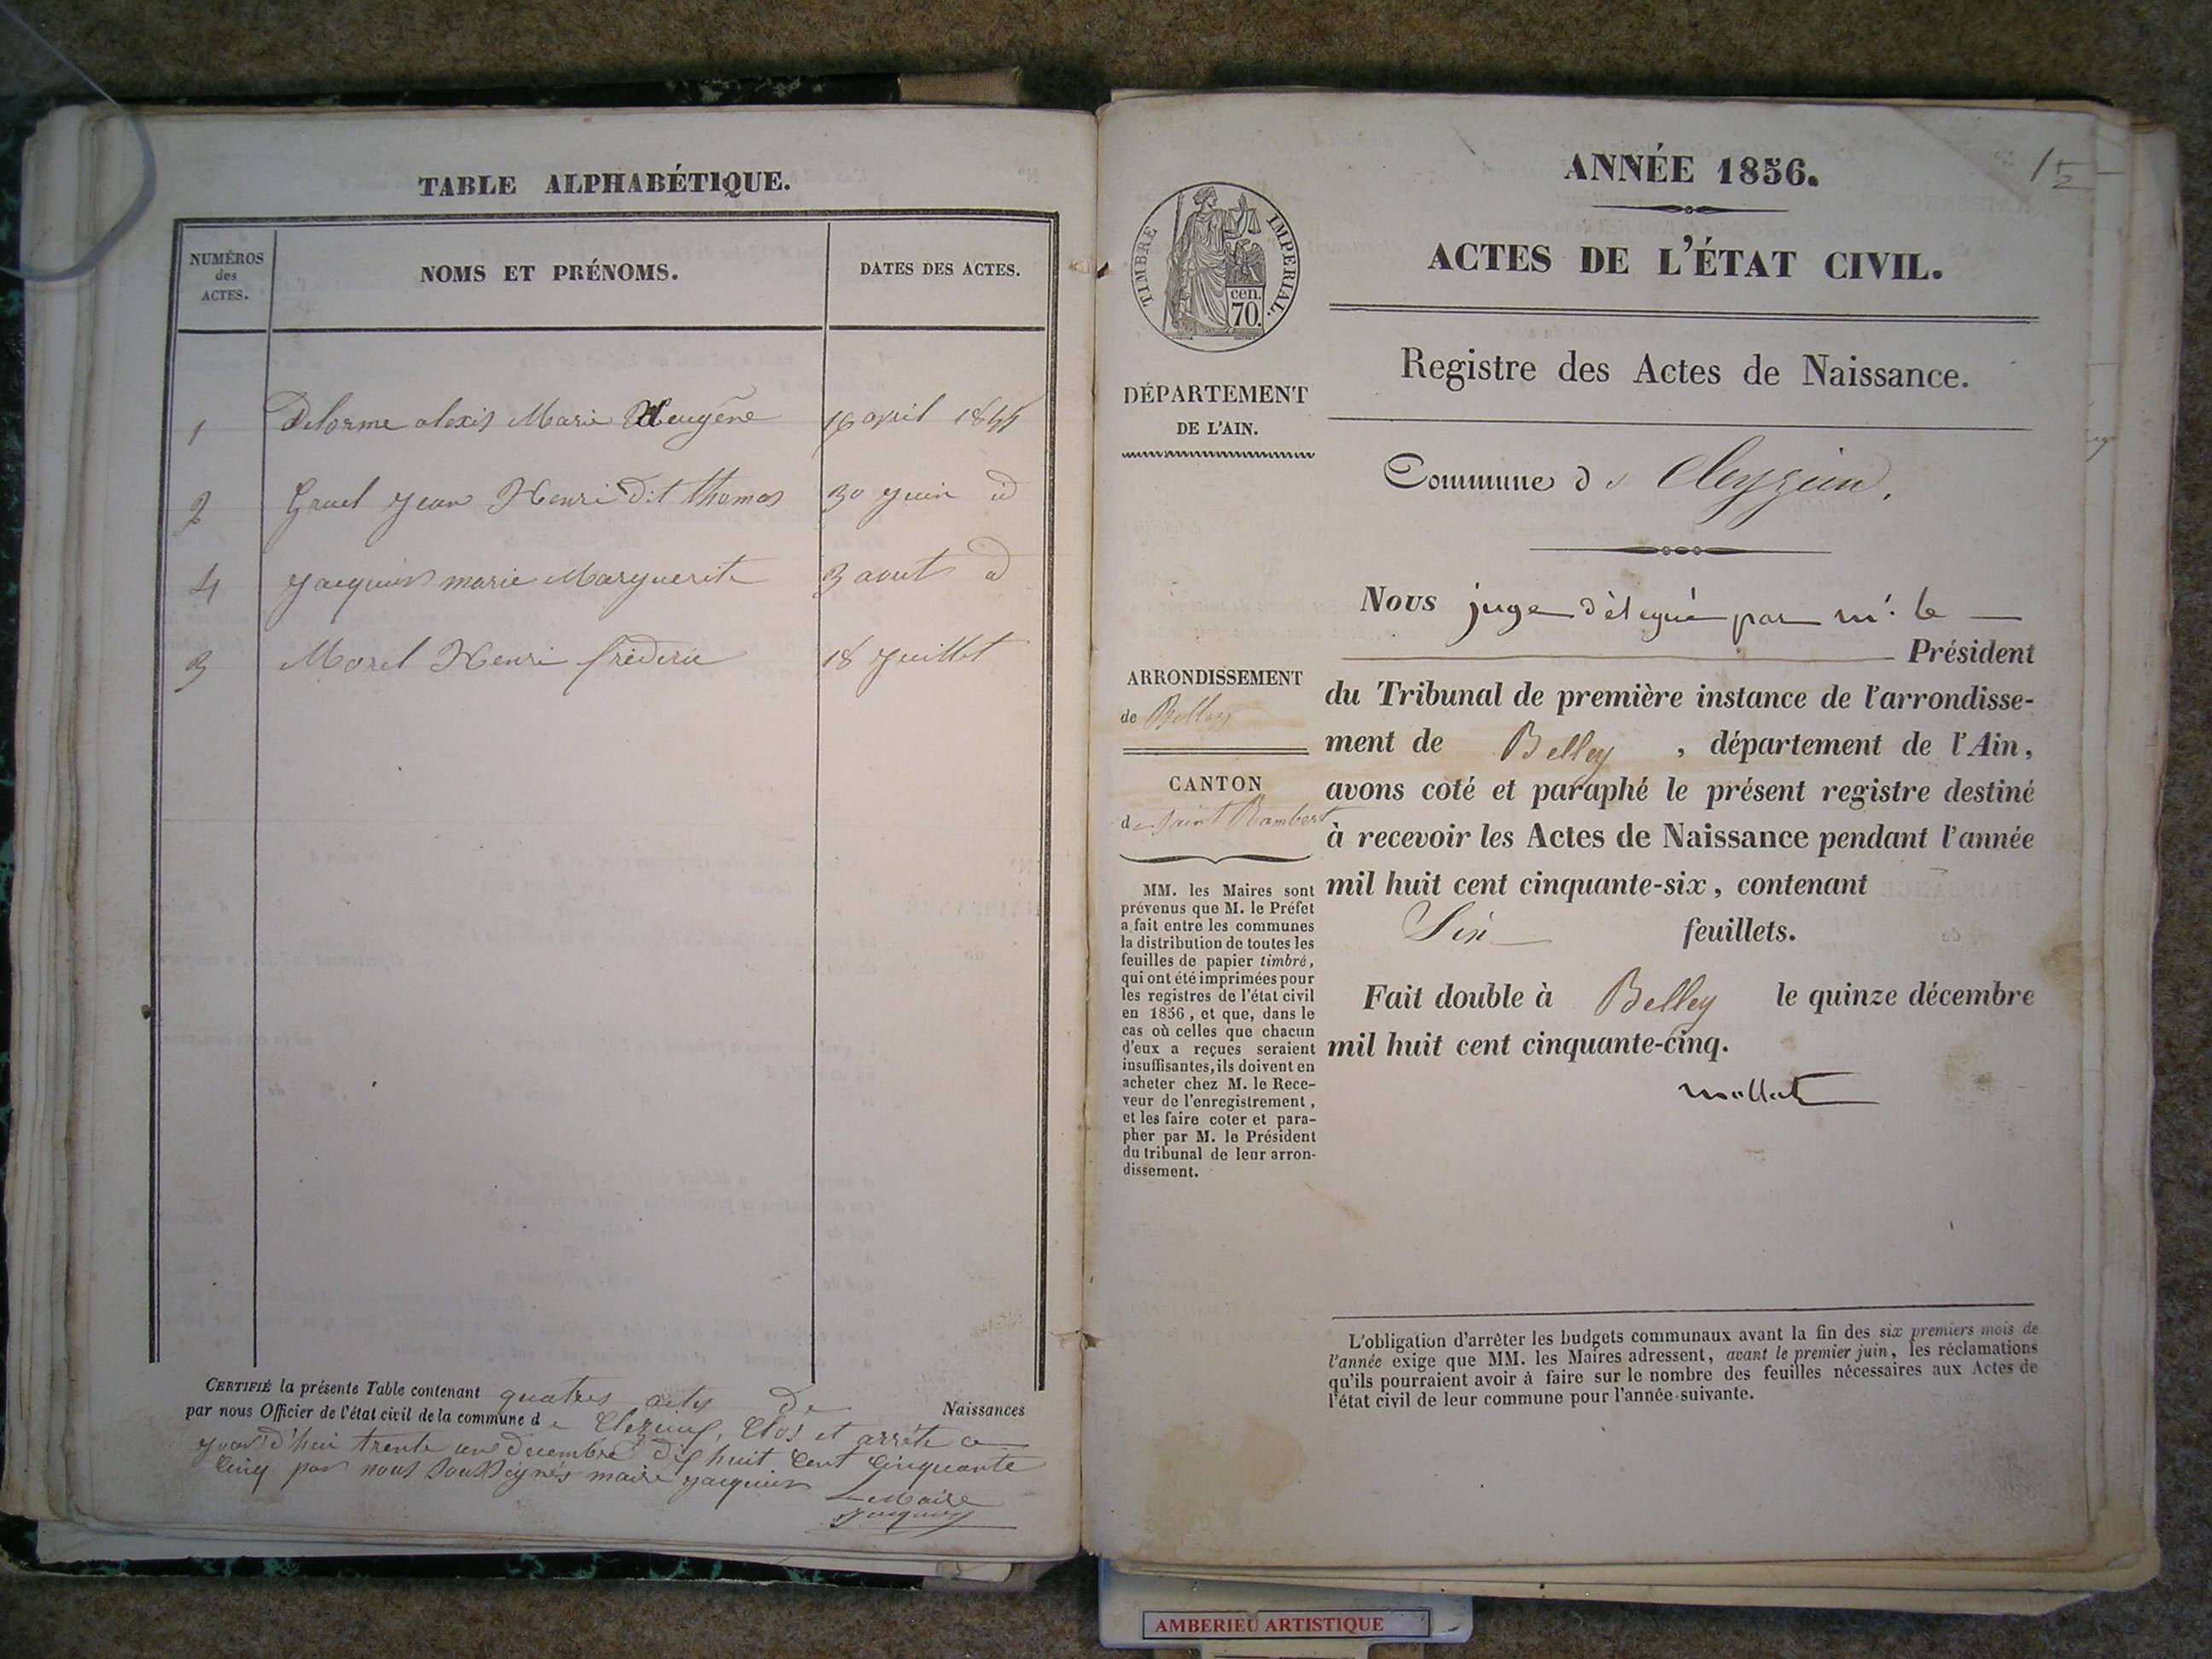 TABLE ALPHABÉTIQUE.
NUMÉROS
des
ACTES.
NOMS ET PRÉNOMS.
DATES DES ACTES.
1 Delorme alexis Marie eugène 16 avril 1855
2 Gruel Jean Henri dit thomas 30 Juin id
4 Jacquin marie Marguerite 3 aout id
3 Morel Henri fréderic 18 Juillet
CERTIFIÉ la présente Table contenant quatres actes de Naissances
par nous Officier de l'état civil de la commune de Cleyzieu, Clos et arrêté ce
jour d'hui trente un decembre dix huit Cent Cinquante
Cinq par nous Soussignés maire Jacquin
Le Maire
Jacquin
ANNÉE 1856.
1/2
ACTES DE L'ÉTAT CIVIL.
TIMBRE IMPERIAL.
cen.
70.
Registre des Actes de Naissance.
DÉPARTEMENT
DE L'AIN.
Commune de Cleyzieu.
Nous juge délégué par mr. le
Président
du Tribunal de première instance de l'arrondisse-
ment de Belley, département de l'Ain,
avons coté et paraphé le présent registre destiné
à recevoir les Actes de Naissance pendant l'année
mil huit cent cinquante-six, contenant
Six feuillets.
Fait double à Belley le quinze décembre
mil huit cent cinquante-cinq.
ARRONDISSEMENT
de Belley
CANTON
de Saint Rambert
MM. les Maires sont
prévenus que M. le Préfet
a fait entre les communes
la distribution de toutes les
feuilles de papier timbré,
qui ont été imprimées pour
les registres de l'état civil
en 1856, et que, dans le
cas où celles que chacun
d'eux a reçues seraient
insuffisantes, ils doivent en
acheter chez M. le Rece-
veur de l'enregistrement,
et les faire coter et para-
pher par M. le Président
du tribunal de leur arron-
dissement.
L'obligation d'arrêter les budgets communaux avant la fin des six premiers mois de
l'année exige que MM. les Maires adressent, avant le premier juin, les réclamations
qu'ils pourraient avoir à faire sur le nombre des feuilles nécessaires aux Actes de
l'état civil de leur commune pour l'année suivante.
AMBERIEU ARTISTIQUE